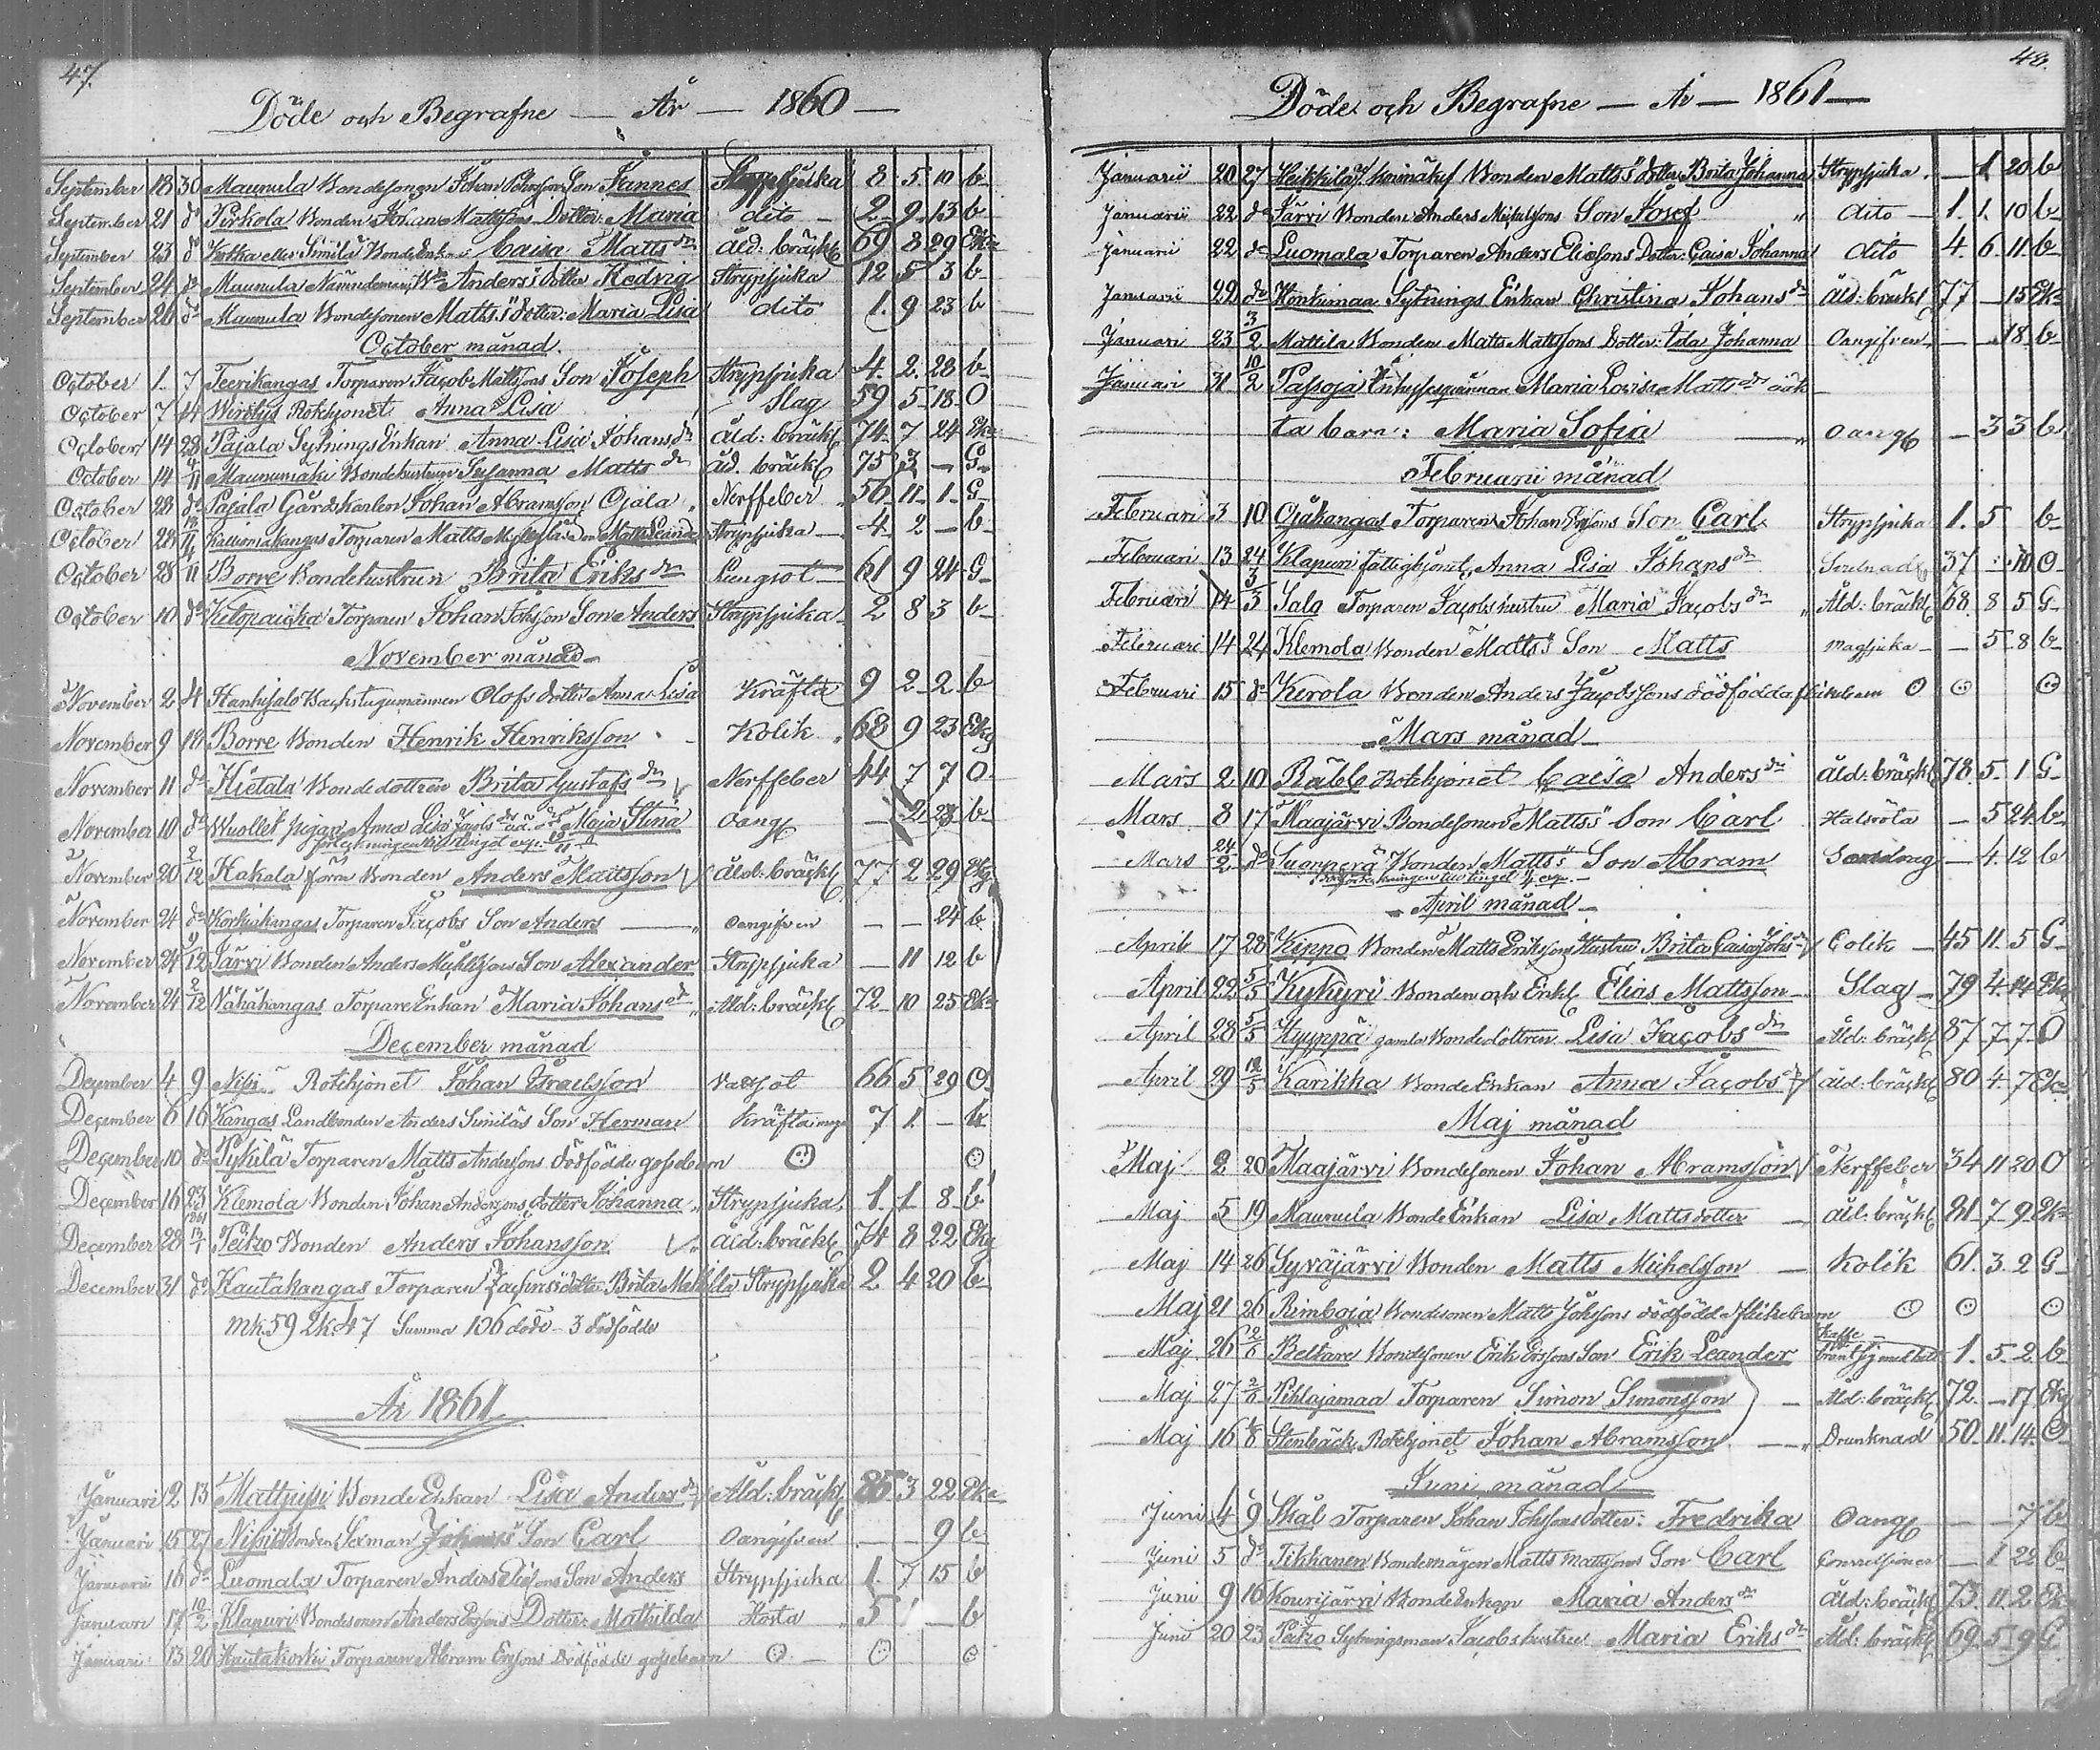 47.
Döde och Begrafne — År — 1860 —
September 18 30 Maunula Bondesonen Johan Son Jannes Strypsjuka 8 5 10 b
September 21 do Pirkola Bonden Johan Mattssons Dotter: Maria dito 2 9 13 b
September 23 do Kotka eller Similä BondeEnkan Caisa Matts dr åld: bräckl 69 8 29 Eka
September 24 do Maunula Nämndeman Anders's dotter Hedvig Strypsjuka 12 5 3 b
September 26 do Maunula Bondesonen Matts's dotter: Maria Lisa dito 1 9 23 b
October månad.
October 1 7 Teerikangas Torparen Jacob Mattssons Son Joseph Strypsjuka 4 2 28 b
October 7 14 Wirkys Rotehjonet Anna Lisa Slag 59 5 18 O
October 14 28 Pajala SytningsEnkan Anna Lisa Johans dr åld: bräckl 74 7 24 Eka
October 14 4/11 Maunumäki Bondehustrun Susanna Matts dr åld. bräckl 75 3 — G
October 28 do Pajala Gårdskarlen Johan Abramsson Ojala Nerffeber 50 11 1 G
October 28 Torparen Matts Son Matts Leander Strypsjuka 4 2 — b
October 28 11 Borre Bondehustrun Brita Eriks dr Lungsot 61 9 24 G
October 10 do Ketopaikka Torparen Johan Johsson Son Anders Strypsjuka 2 8 3 b
November månad
November 2 4 Hankisalo Backstugumannen Olofs dotter Anna Lisa Kräfta 9 2 2 b
November 9 18 Borre Bonden Henrik Henriksson Kolik 68 9 23 Ekg
November 11 do Hietala Bondedottren Brita Gustafs dr Nerffeber 44 7 7 O
November 10 do Wuollet pigan Anna Lisa Jacobs dr Maja Stina Oang — 2 23 b
November 20 2/12 Hakala förra Bonden Anders Mattsson åld: bräckl 77 2 29 Ekg
November 24 do Korkiakangas Torparen Jacobs Son Anders Oangifven — — 24 b
November 24 9/12 Järvi Bonden Anders Mickelssons Son Alexander Strypsjuka — 11 12 b
November 24 2/12 Vähäkangas TorpareEnkan Maria Johans dr Åld: bräckl 72 10 25 Eka
December månad
December 4 9 Nisi Rotehjonet Johan Israelsson Vattsot 66 5 29 O
December 6 16 Kangas Landbonden Anders Similäs Son Herman Kräfta 7 1 — b
December 10 do Pykilä Torparen Matts Anderssons dödfödde gossebarn
December 16 23 Klemola Bonden Johan Anderssons dotter Johanna Strypsjuka 1 1 8 b
December 28 1861 13/1 Peitzo Bonden Anders Johansson åld: bräckl 74 8 22 Ekg
December 31 do Kautakangas Torparen dotter Brita Mathilda Strypsjuka 2 4 20 b
mk. 59 2k. 47 Summa 106 döde — 3 dödfödde
År 1861.
Januari 2 13 BondeEnkan Lisa Anders dr Åld: bräckl 85 3 22 Eka
Januari 15 27 Nisi Bonden Sexman Son Carl Oangifven — — 9 b
Januari 16 do Luomala Torparen Anders Eliæsons Son Anders Strypsjuka 1 7 15 b
Januari 17 10/2 Klapuri Bondesonen Anders Dotter: Mathilda Hosta 5 1 — b
Januari 13 20 Kautakorki Torparen Abram Erssons dödfödde gossebarn
48.
Döde och Begrafne — År — 1861 —
Januarii 20 27 Heikkilä Bonden Matts's dotter Brita Johanna Strypsjuka — 1 20 b
Januarii 22 do Järvi Bonden Anders Mickelssons Son Josef dito 1 1 10 b
Januari 22 do Luomala Torparen Anders Eliæsons Dotter: Caisa Johanna dito 4 6 11 b
Januarii 22 do Honkimaa Sytnings Enkan Christina Johans dr åld: bräckl 77 — 15 Eka
Januari 23 3/2 Mattila Bonden Matts Mattssons Dotter: Ida Johanna Oangifven — — 18 b
Januari 31 10/2 Passoja Enhyses qvinnan Maria Lovisa Matts dr oäk
ta barn: Maria Sofia Oang — 3 3 b
Februarii månad
Februari 3 10 Ojakangas Torparen Johan Son Carl Strypsjuka 1 5 b
Februari 13 24 Klapuri fattighjonet Anna Lisa Johans dr 37 10 O
Februari 14 3/3 Salo Torparen Jacobs hustru Maria Jacobs dr Åld: bräckl 68 8 5 G
Februari 14 24 Klemola Bonden Matts's Son Matts Magsjuka — 5 8 b
Februari 15 do Kerola Bonden Anders Jacobssons dödfödda flickebarn
Mars månad
Mars 2 10 Räbb Rotehjonet Caisa Anders dr åld: bräckl 78 5 1 G
Mars 8 17 Maajärvi Bondesonen Matts's Son Carl Halsröta — 5 24 b
Mars 24/2 do Suanperä Bonden Matts's Son Abram — 4 12 b
April månad
April 17 28 Kippo Bonden Matts Erikssons Hustru Brita Caisa Johs dr Colik 45 11 5 G
April 22 5/5 Kykyri Bonden och Enkl Elias Mattsson Slag 79 4 14 Ekg
April 28 5/5 Kyyppä gamla Bondedottren Lisa Jacobs dr Åld: bräckl 87 7 7 O
April 29 12/5 Karikka Bonde Enkan Anna Jacobs dr åld: bräckl 80 4 7 Eka
Maj månad
Maj 2 20 Maajärvi Bondesonen Johan Abramsson Nerffeber 34 11 20 O
Maj 5 19 Maunula BondeEnkan Lisa Matts dotter åld: bräckl 81 7 9 Eka
Maj 14 26 Syväjärvi Bonden Matts Michelsson Kolik 61 3 2 G
Maj 21 26 Rimboja Bondesonen Matts Johssons dödfödda flickebarn
Maj 26 2/6 Belttare Bondesonen Erik Erssons Son Erik Leander Kaffe bränt sig med hett 1 5 2 b
Maj 27 2/6 Pihlajamaa Torparen Simon Simonsson Åld: bräckl 72 — 17 Ekg
Maj 16 Stenbäck Rotehjonet Johan Abramsson Drunknad 50 11 14 O
Juni månad
Juni 4 9 Skål Torparen Johan Johssons dotter: Fredrika Oang — — 7 b
Juni 5 do Tikkanen Bondemågen Matts Mattssons Son Carl — 1 22 b
Juni 9 16 Kourijärvi BondeEnkan Maria Anders dr åld: bräckl 73 11 2 Eka
Juni 20 23 Peitzo Sytningsman Jacobs hustru Maria Eriks dr Åld: bräckl 69 5 9 G